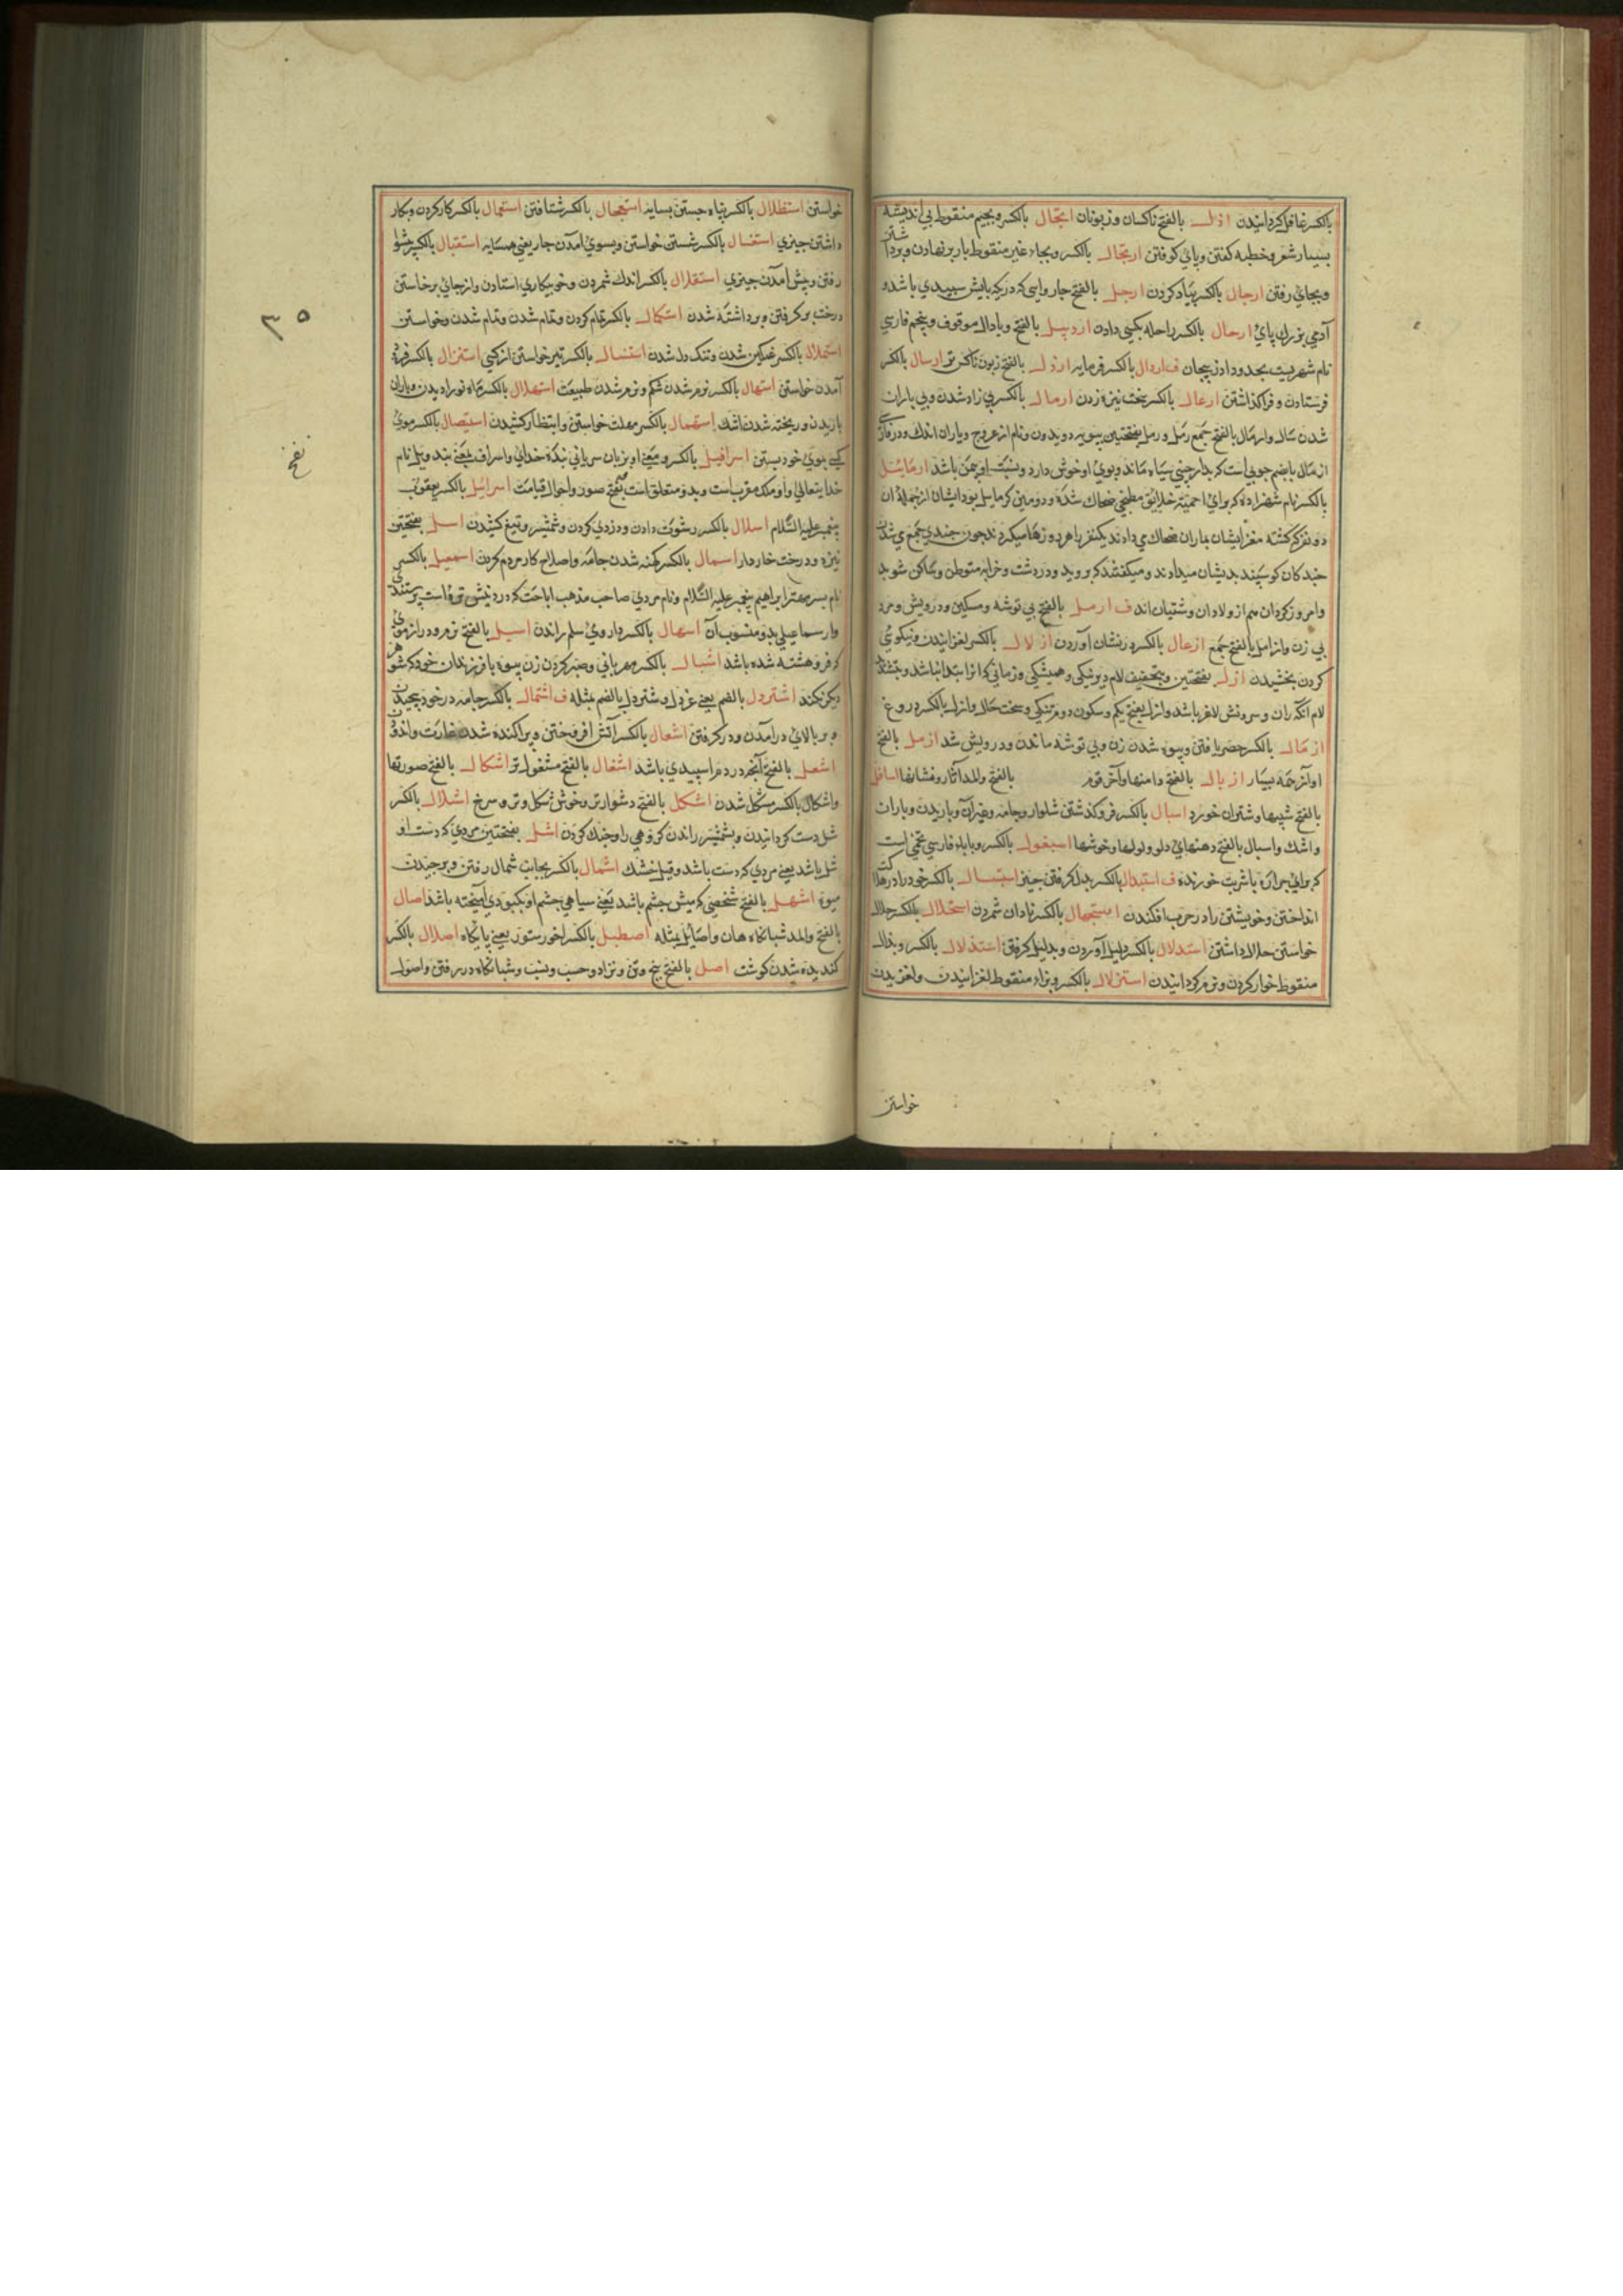 بالکسر غافل کردانیدن ارذل بالفتح ناکسان و زبونان ارتجال بالکسر و بجیم منقوط بی اندیشه
بسیار شعر و خطبه کفتن و پای کوفتن ارتحال بالکسر و بحاء غیر منقوط بار بر نهادن و برداشتن
و بجای رفتن ارجال بالکسر پیاده کردن ارجل بالفتح چار وایی که در یکپایش سپیدی باشد و
آدمی بزرك پای ارحال بالکسر راحله بکسی دادن اردبیل بالفتح و با دال موقوف و پنجم فارسی
نام شهریست بحدود اذربیجان ف اردال بالکسر فرومایه ارذل بالفتح زبون ناکس تر ارسال بالکسر
فرستادن و فراکذاشتن ارعال بالکسر سخت نیزه زدن ارمال بالکسر بی زاد شدن و بی باران
شدن سال و ارمال بالفتح جمع رمل و رمل بفتحتین بپویه دویدن و نام از عروج و باران اندك و در فارسی
ارمال بابضم چوبی است که بدارچینی سیاه ماند و بوی او خوش دارد و بنبت او بیمن باشد ارمائیل
بالکسر نام شهزاده که برای حمیة خلائق مطبخی ضحاك شده و دومین کرمایل بود ایشان از جمله ان
دو نفر که کشته مغز ایشان بماران ضحاك می دادند یکنفر را هر روز رها میکردند چون چندی جمع می شدند
چند کان کوسپند بدیشان میدادند و میکفتند که بروید و در دشت و خرابه متوطن و ساکن شوید
و امروز کردان هم از ولادان وشتیان اند ف ارمل بالفتح بی توشه و مسکین و درویش و مرد
بی زن و ارامل بالفتح جمع ازعال بالکسر در نشان آوردن ازلال بالکسر لغزانیدن و نیکوئی
کردن بخشیدن ازل بفتحتین و بتخفیف لام دیرنیکی و همیشکی و زمانی که انرا ابتدا نباشد و بتشدید
لام آنکه ران و سرونش لاغر باشد و ازل بفتح یکم و سکون دوم تنکی و سخت حال و ازل بالکسر دروغ
ازمال بالکسر حصر یافتن و بیوه شدن زن و بی توشه ماندن و درویش شد ازمل بالفتح
آواز همه بسیار ازبال بالفتح دامنها و آخر قوم بالفتح و المد آثار و نشانها اسافل
بالفتح شیبها و شتران خورد اسبال بالکسر فرو کذشتن شلوار و جامه و غیر ان و باریدن و باران
و اشك و اسبال بالفتح دهنهای دلو و لولها و خوشها اسبغول بالکسر و با باء فارسی تخمی است
که برای حرارة باشربت خورند ف استبدال بالکسر بدل کرفتن چیزی استبسال بالکسر خود را در هلاکت
انداختن و خویشتن را در حرب افکندن استجهال بالکسر نادان شمردن استحلال بالکسر حلال
خواستن حلال داشتن استدلال بالکسر دلیل آوردن و بدلیل کرفتن استذلال بالکسر و بذال
منقوط خوار کردن و نرم کردانیدن استزلال بالکسر و بزاء منقوط لغزانیدن و لغزیدن
خواستن
خواستن استظلال بالکسر پناه جستن بسایه استعجال بالکسر شتافتن استعمال بالکسر کار کردن و بکار
داشتن چیزی استغسال بالکسر شستن خواستن و بسوی آمدن جار یعنی همسایه استقبال بالکسر پیشوا
رفتن و پیش آمدن چیزی استقلال بالکسر اندك شمردن و خو بیکاری استادن و از جای برخاستن
درخت بر کرفتن و برداشته شدن استکمال بالکسر تمام کردن و تمام شدن و تمام شدن و خواستن
استملال بالکسر غمکین شدن و تنك دل شدن استنسال بالکسر تیر خواستن از کسی استنزال بالکسر فرود
آمدن خواستن استهال بالکسر نرم شدن شکم و نرم شدن طبیعت استهلال بالکسر ماه نو را دیدن و باران
باریدن و ریخته شدن اشك استمهال بالکسر مهلت خواستن و انتظار کشیدن استیصال بالکسر موی
کسی بموی خود بستن اسرافیل بالکسر و معنی او بزبان سریانی بندۀ خدای و اسراف بمعنی بند و یل نام
خدایتعالی و او ملك مقرب است و بدو متعلق است نفخ صور و احوال قیامت اسرائیل بالکسر یعقوب
پیغمبر علیه السلام اسلال بالکسر رشوت دادن و دزدی کردن و شمشیر و تیغ کشیدن اسل بفتحتین
نیزه و درخت خار دار اسمال بالکسر کهنه شدن جامه و اصلاح کار مردم کردن اسمعیل بالکسر
نام پسر مهتر ابراهیم پیغمبر علیه السلام و نام مردی صاحب مذهب اباحت که در دینش بت پرستند
و ارسماعیلی بدو منسوب آن اسهال بالکسر دارویی سلم راندن اسیل بالفتح نرم و دراز موی
که فروهشته شده باشد اشبال بالکسر مهربانی و صبر کردن زن بیوه با فرزندان خود که شوهر
دیکر نکند اشتردل بالضم یعنی غردل و شتردل بالضم بمثله ف اشتمال بالکسر جامه در خود پیچیدن
و بر بالای درآمدن و درکرفتن اشعال بالکسر آتش افروختن و پراکنده شدن غارت و اندوه
اشعل بالفتح آنچه در دم اسپیدی باشد اشغال بالفتح مشغول تر اشکال بالفتح صورتها
و اشکال بالکسر مشکل شدن اشکل بالفتح دشوارتر و خوش شکل و تن و سرخ اشلال بالکسر
شل دست کردانیدن و بشمشیر راندن کروهی را و خنك کردن اشل بفتحتین مردی که دست او
شل باشد یعنی مردی که دست باشد و قیل خشك اشمال بالکسر بجانب شمال رفتن و برچیدن
میوه اشهل بالفتح شخصی که میش چشم باشد یعنی سیاهی چشم او بکبودی آمیخته باشد اصال
بالفتح و المد شبانکاه هان و اصایل بمثله اصطبل بالکسر اخور ستور یعنی پایکاه اصلال بالکسر
کندیده شدن کوشت اصل بالفتح بیخ و تن و نژاد و حسب و نسب و شبانکاه در رفتن و اصول
٣٥
نفخ